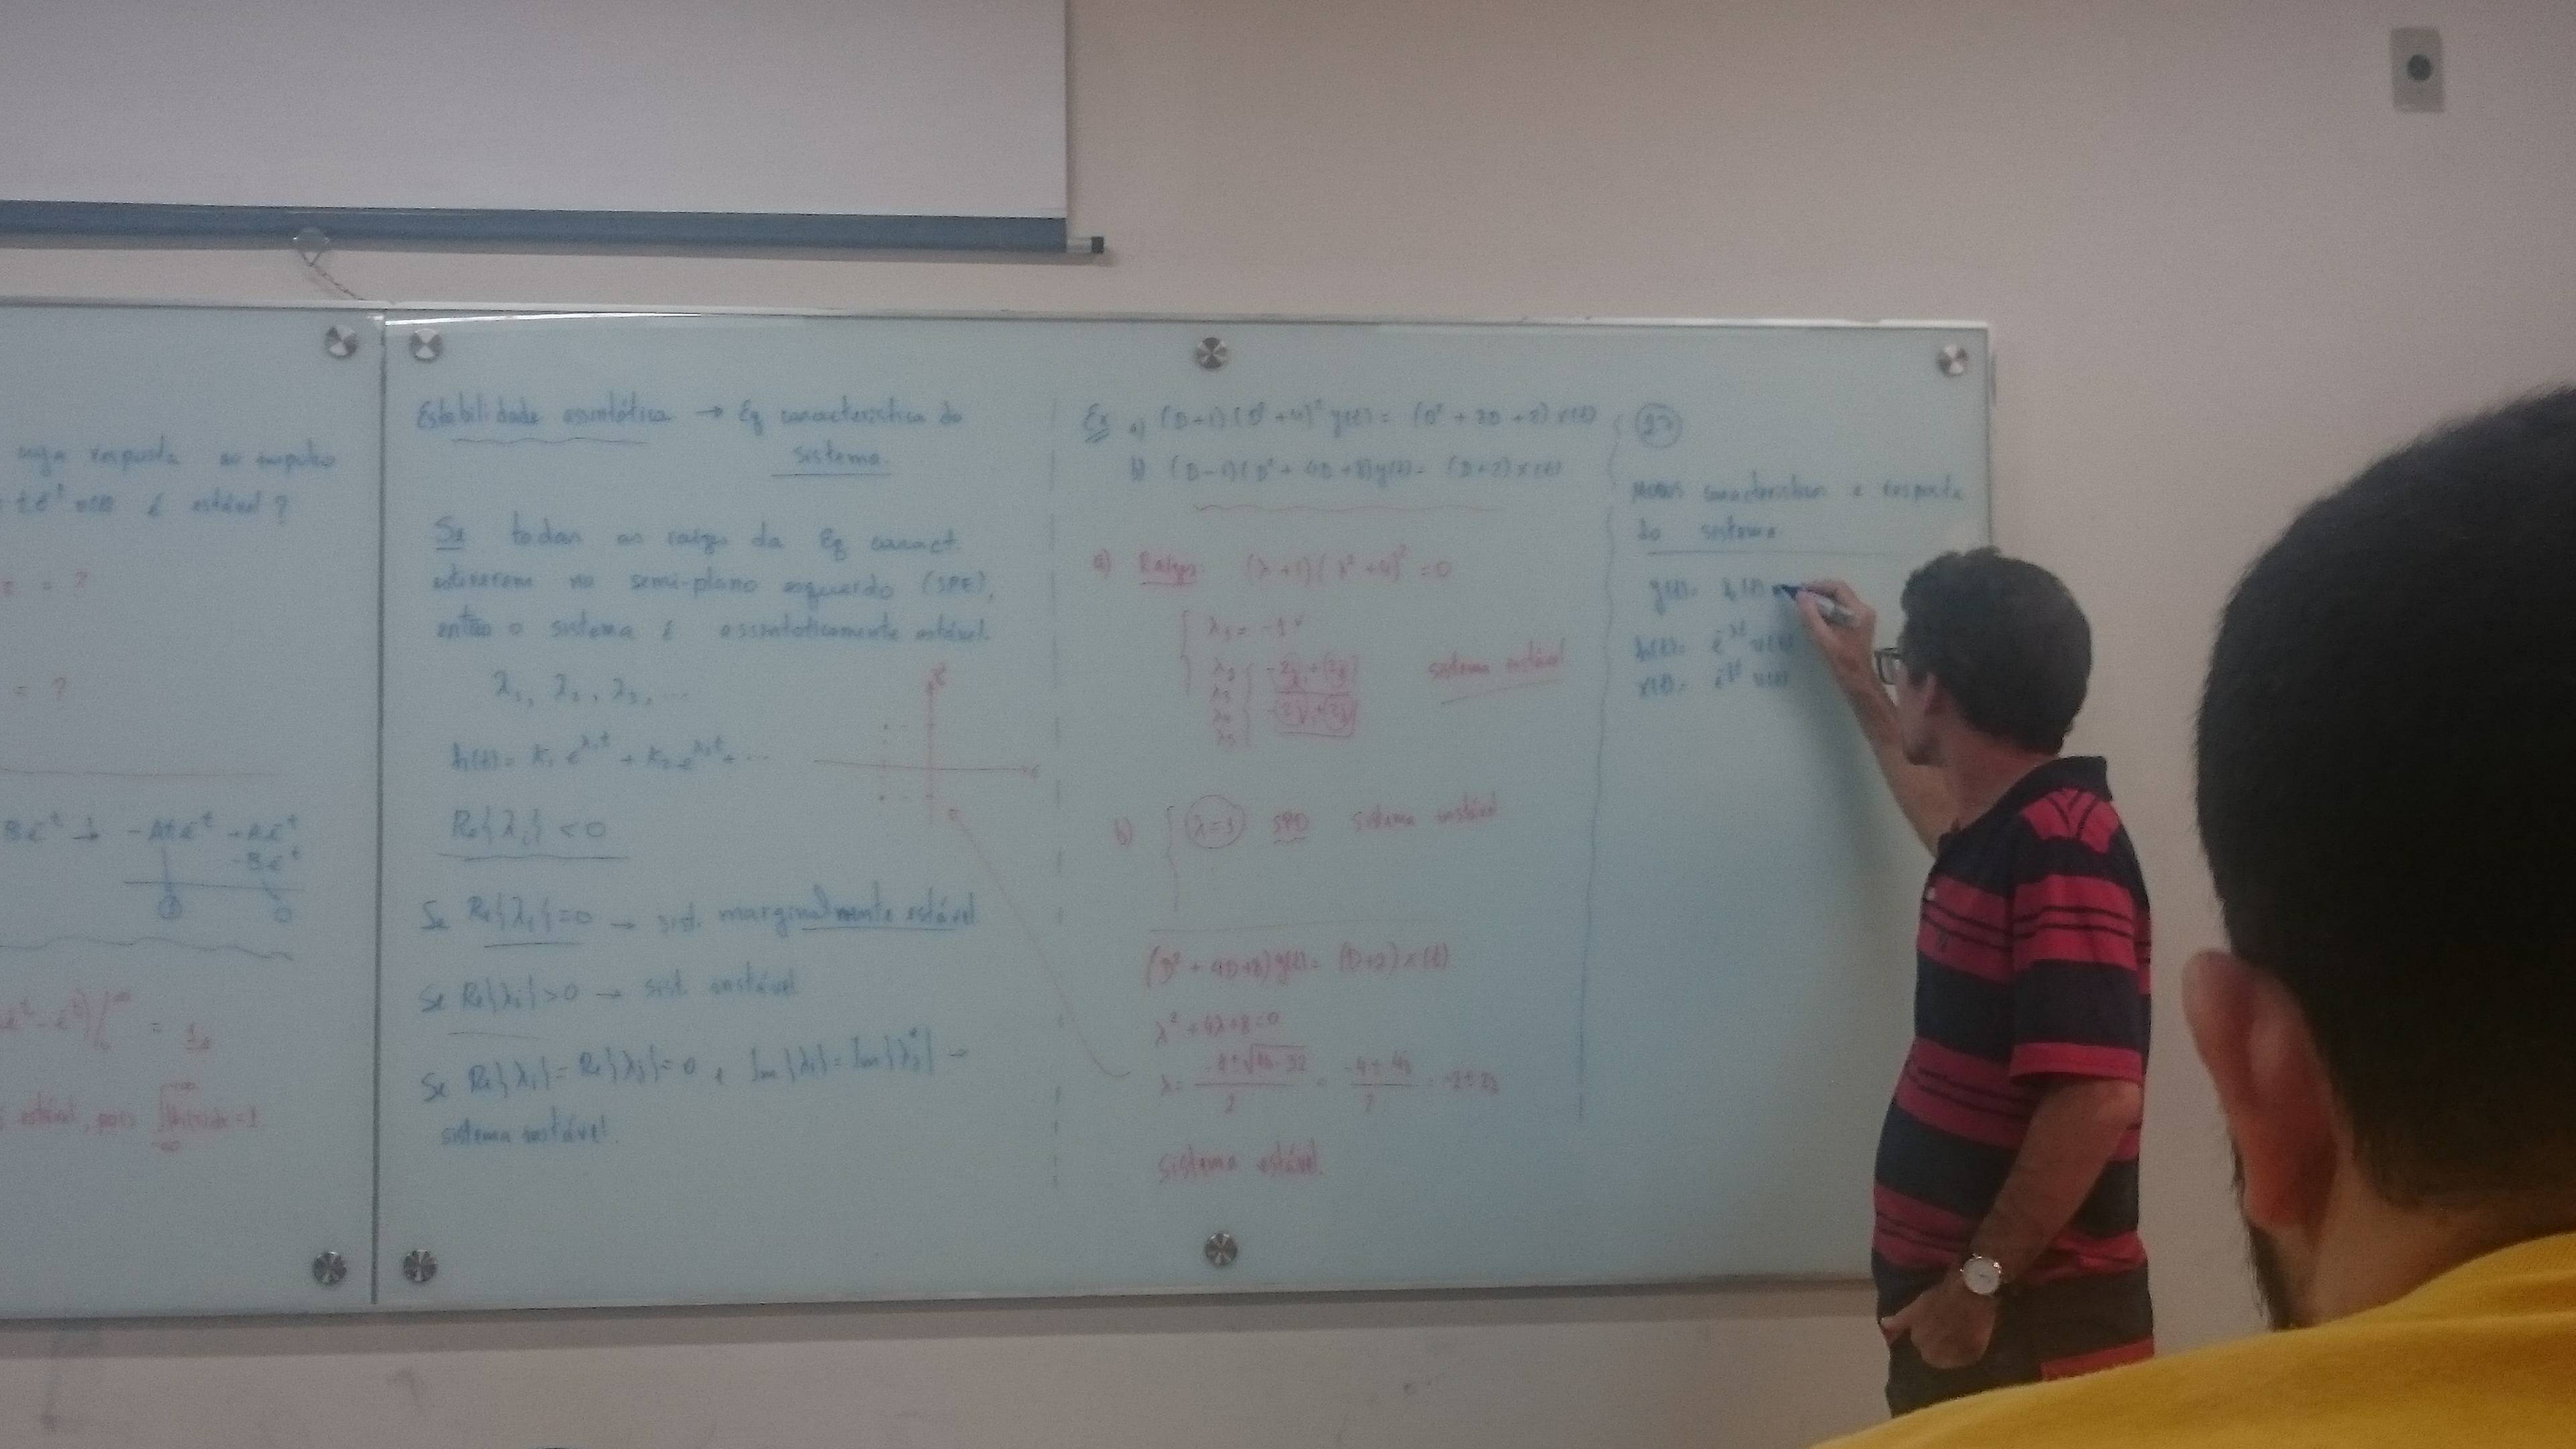 cuja resposta ao impulso
é estável?
= ?
= ?
Be⁻ᵗ → -Ate⁻ᵗ + Ae⁻ᵗ
-Be⁻ᵗ
0
estável, pois
Estabilidade assintótica → Eq característica do
sistema.
Se todas as raízes da Eq caract.
estiverem no semi-plano esquerdo (SPE),
então o sistema é assintoticamente estável.
λ₁, λ₂, λ₃, ...
h(t) = K₁ e^λ₁t + K₂ e^λ₂t + ...
Re{λᵢ} < 0
Se Re{λᵢ} = 0 → sist. marginalmente estável
Se Re{λᵢ} > 0 → sist. instável
Se Re{λᵢ} = Re{λⱼ} = 0 e Im{λᵢ} = Im{λⱼ*} →
sistema instável.
Ex a) (D+1)(D²+4)² y(t) = (D² + 2D + 8) x(t)
b) (D-1)(D² + 4D + 8) y(t) = (D+2) x(t)
a) Raízes: (λ+1)(λ²+4)² = 0
λ₁ = -1 ✓
sistema instável
b) λ=1 SPD sistema instável
(D² + 4D+8) y(t) = (D+2) x(t)
λ² + 4λ+8=0
λ = (-4±√(16-32))/2 = (-4±4j)/2 = -2±2j
sistema estável.
27
característicos e resposta
do sistema
y(t) = h(t)
h(t) = e^λt u(t)
x(t) = u(t)